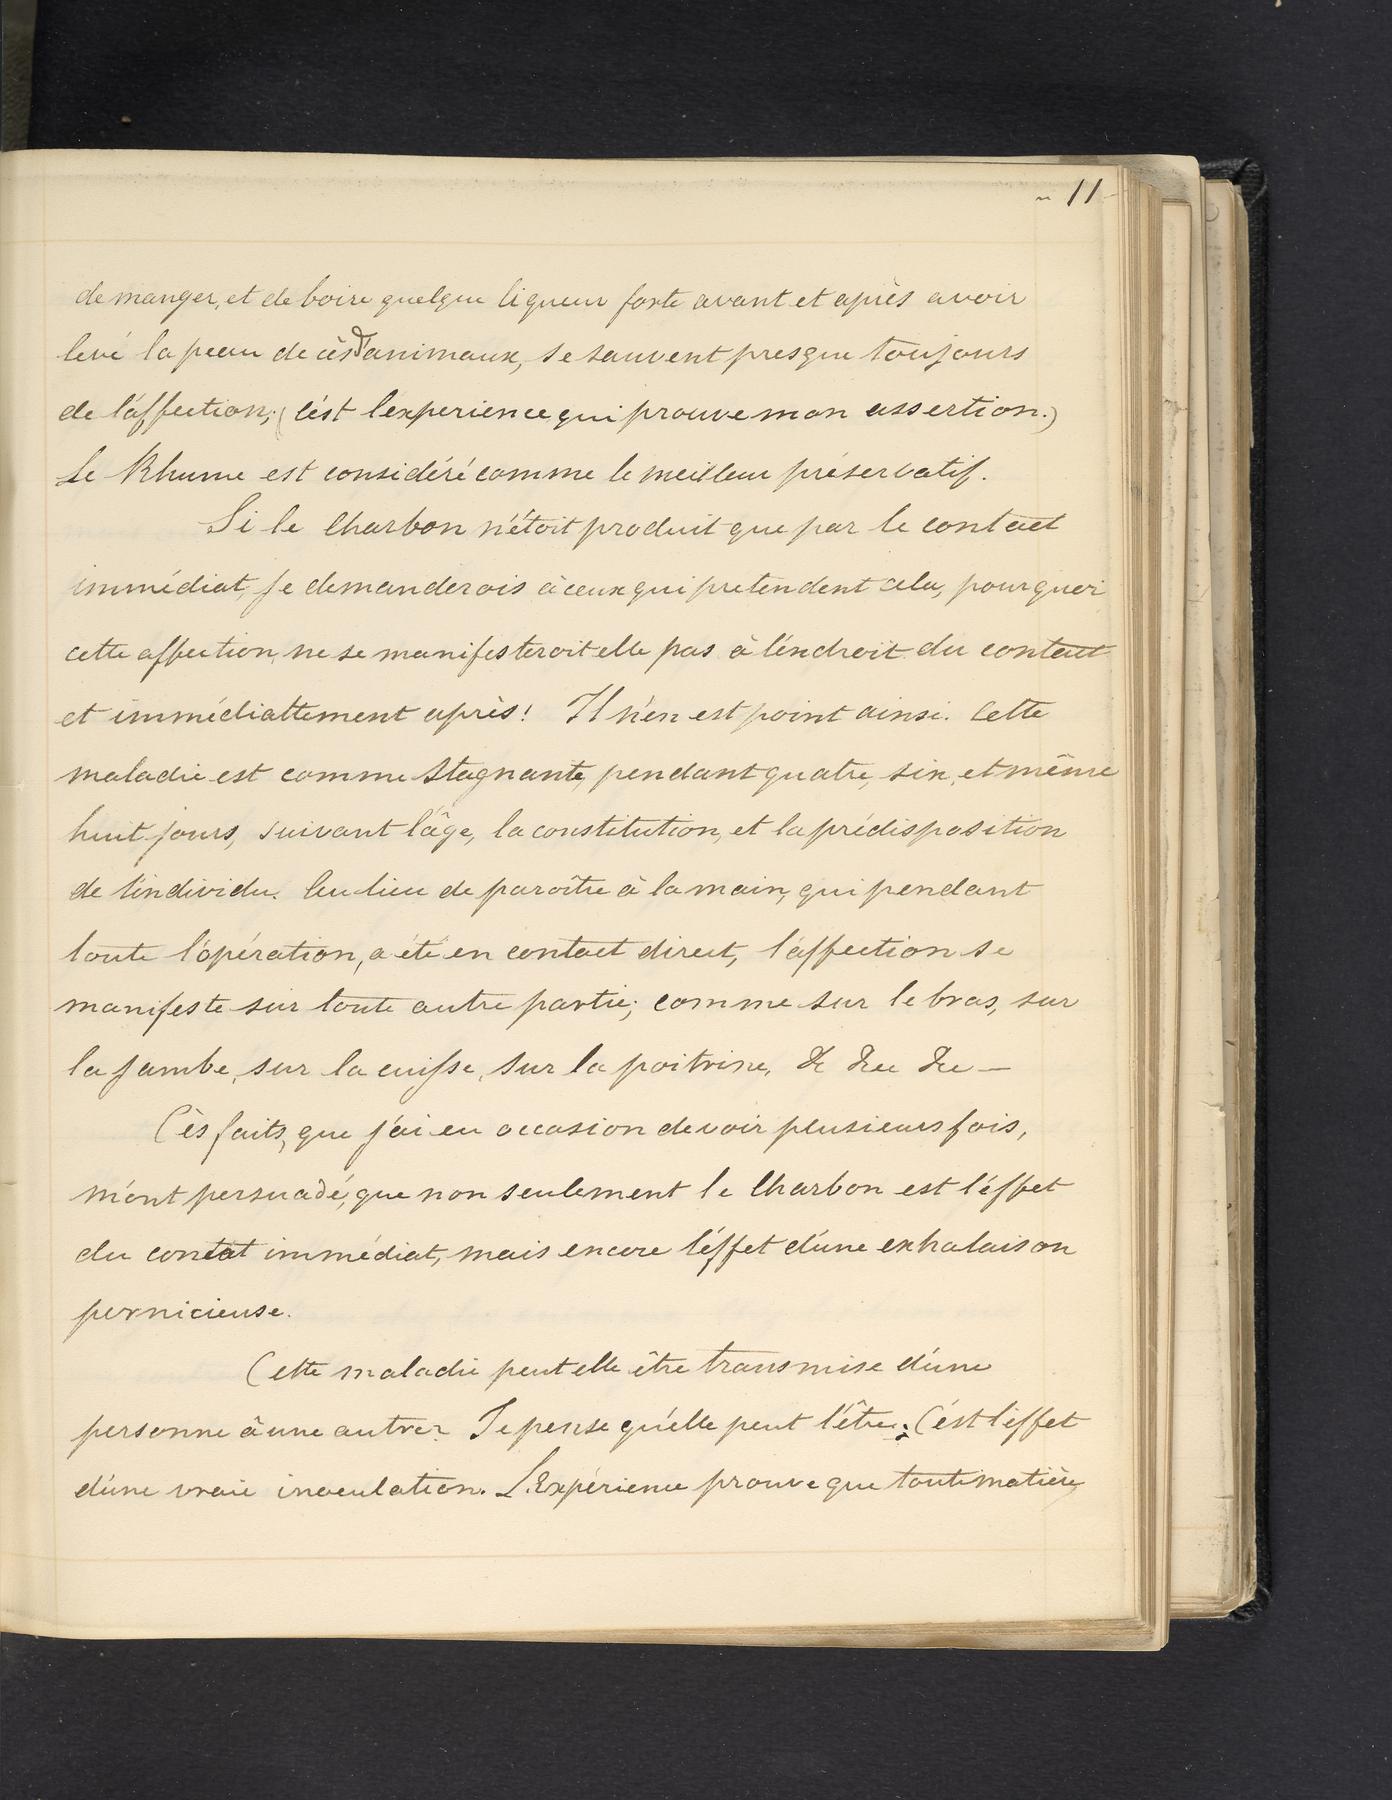 11
de manger, et de boire quelque liqueur forte avant et après avoir
levé la peau de cès d'animaux, se sauvent presque toujours
de l'affection; (c'ést l'experience qui prouve mon assertion.)
Le Rhume est considéré comme le meilleur préservatif.
Si le Charbon n'étoit produit que par le contact
immédiat, je demanderois à ceux qui pretendent cela, pourquoi
cette affection, ne se manifesteroit elle pas à l'éndroit du contact
et immédiattement après! Il n'en est point ainsi. Cette
maladie est comme stagnante, pendant quatre, six, et même
huit jours, suivant l'âge, la constitution, et la prédisposition
de l'individu. Au lieu de paroître à la main, qui pendant
toute l'opération, a été en contact direct, l'affection se
manifeste sur toute autre partie; comme sur le bras, sur
la jambe, sur la cuisse, sur la poitrine, &c &c &c —
Cès faits, que j'ai eu occasion de voir plusieurs fois,
m'ont persuadé, que non seulement le Charbon est l'éffet
du contat immédiat, mais encore l'éffet d'une exhalaison
pernicieuse.
Cette maladie peut elle être transmise d'une
personne à une autre? Je pense qu'elle peut l'être; C'ést l'éffet
d'une vraie inoculation. L'Expérience prouve que toute matière